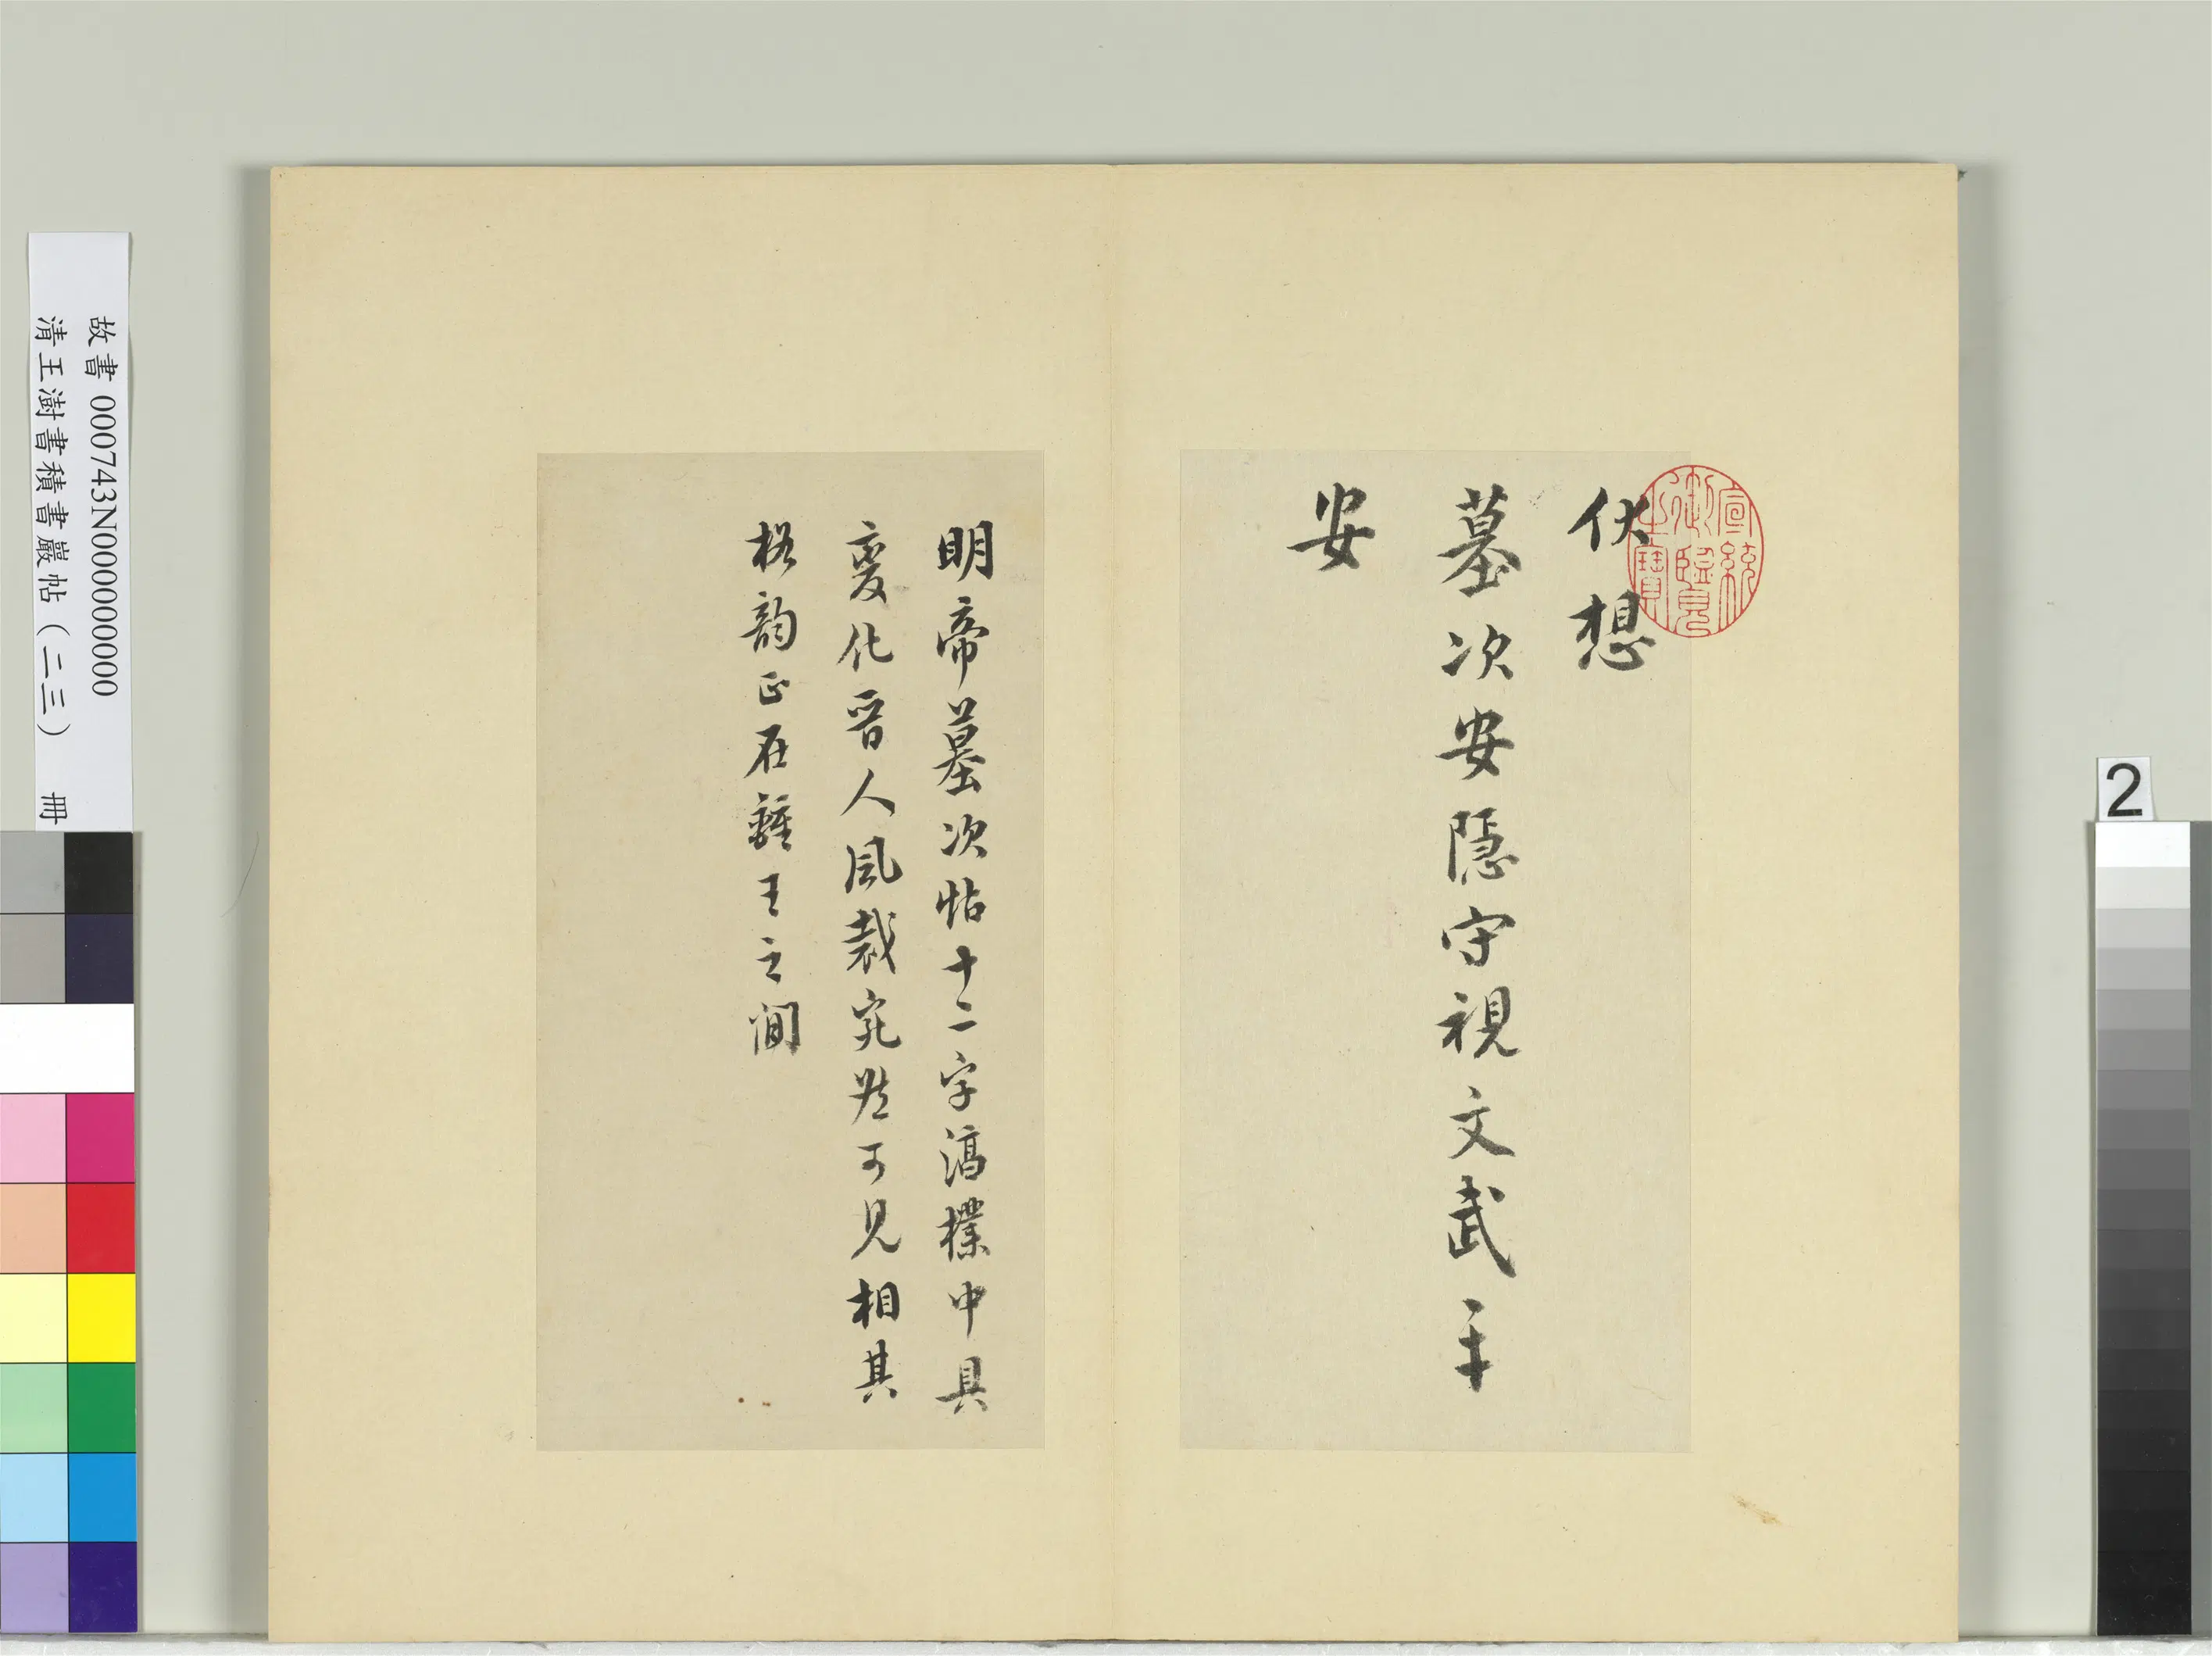 伏想
墓次安隱守視文武平
安
宣統
御覽
之寶
明帝墓次帖十二字淳樸中具
變化晉人風裁宛然可見相其
格韻正在鍾王之間
故書 000743N000000000
清王澍書積書巖帖（二三） 冊
2